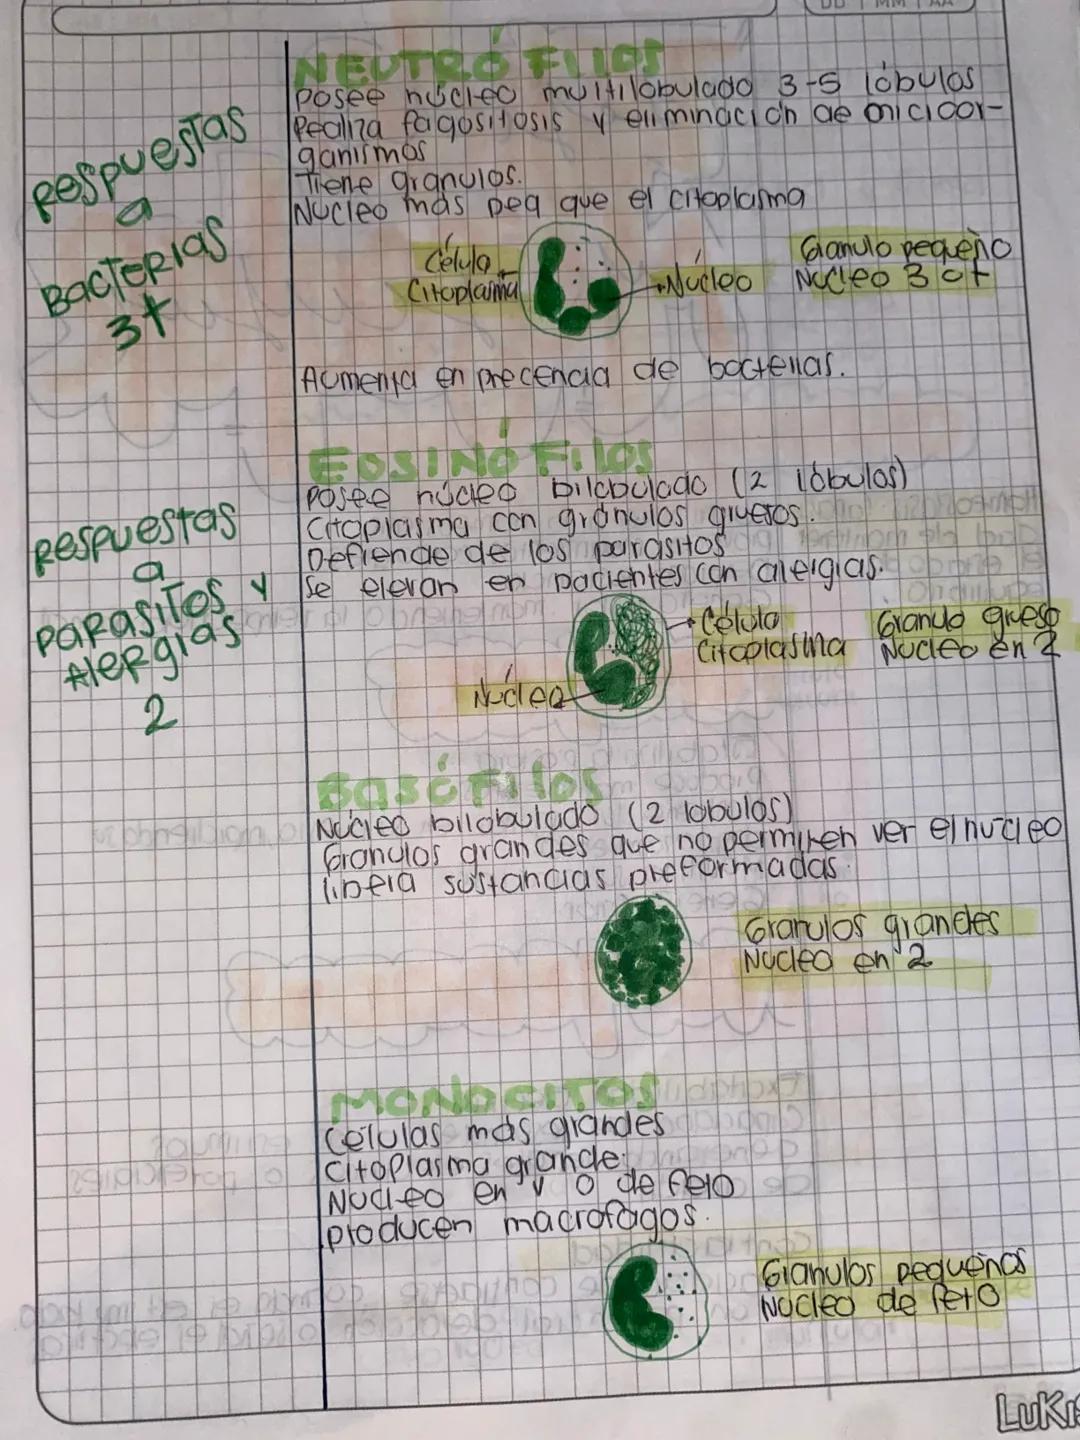 DD MM AA
NEUTRÓFILOS
Posee núcleo multilobulado 3-5 lóbulos
Realiza fagositosis y eliminación de micioor-
ganismos
Tiene granulos.
Nucleo más peq que el citoplasma
Respuestas
a
Bacterias
3+
Célula
Citoplasma
Núcleo
Granulo pequeño
Nucleo 3 o +
Aumenta en precencia de bacterias.
EOSINÓFILOS
Posee núcleo bilobulado (2 lóbulos)
Citoplasma con gránulos gruesos.
Defiende de los parasitos
Se elevan en pacientes con alergias.
Respuestas
a
parasitos y
Alergias
2
Célula
Citoplasma
Granulo grueso
Nucleo en 2
Núcleo
BASÓFILOS
Núcleo bilobulado (2 lobulos)
Granulos grandes que no permiten ver el nucleo
libera sustancias preformadas.
Granulos grandes
Nucleo en 2
MONOCITOS
Células más grandes
Citoplasma grande.
Nucleo en v o de feto
producen macrofagos.
Granulos pequeños
Nucleo de feto